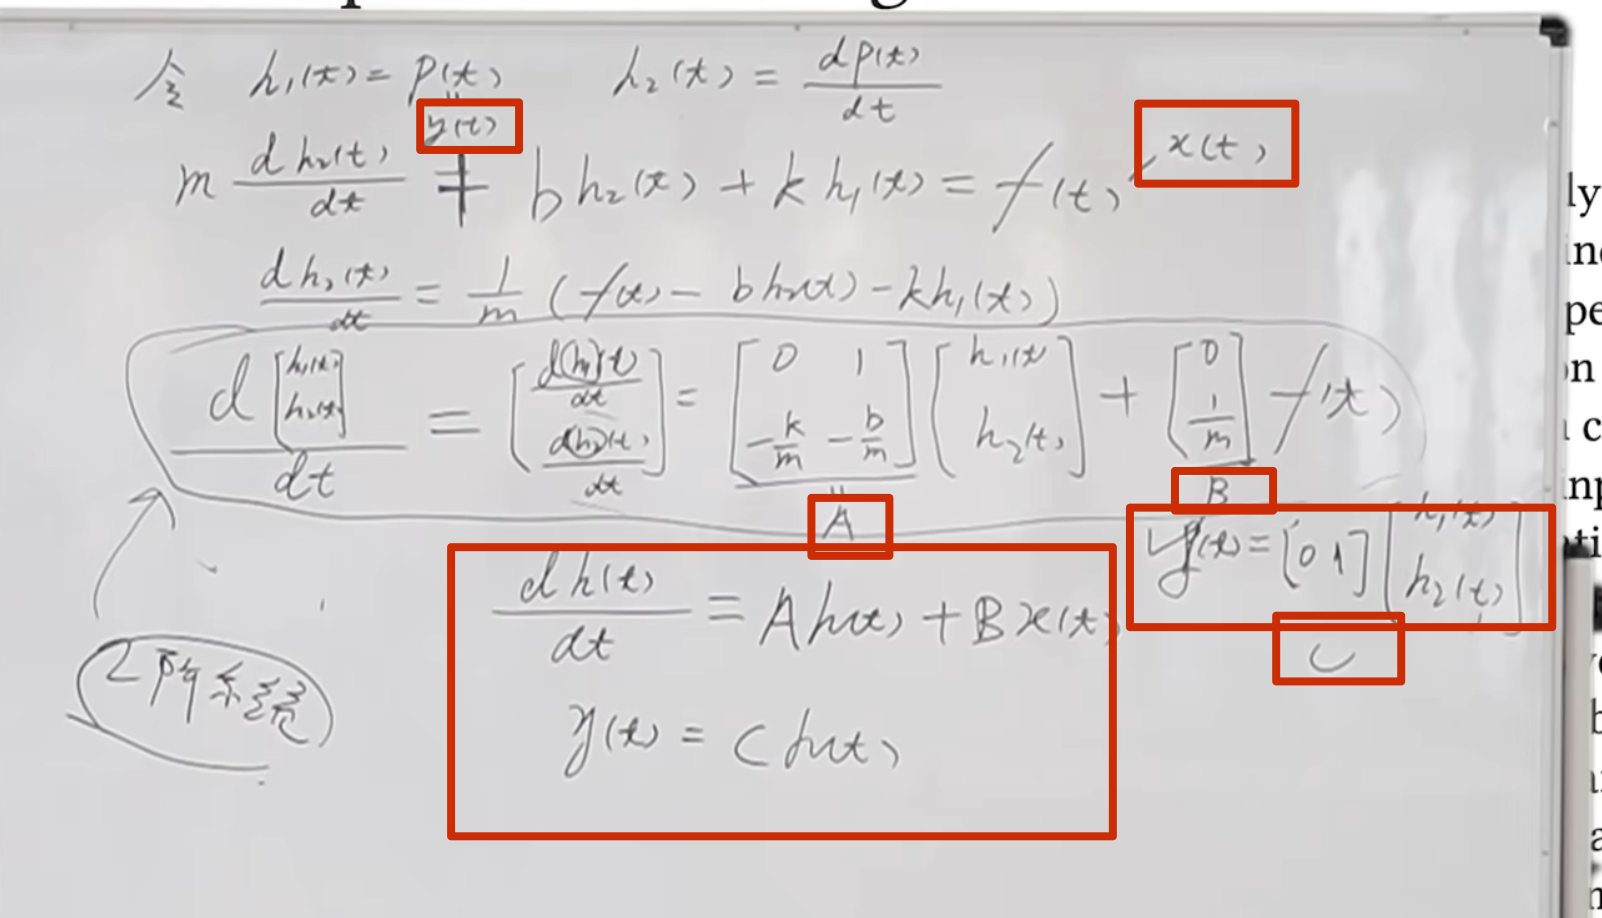 令 h₁(t) = p(t) h₂(t) = dp(t)/dt
y(t)
x(t)
m dh₂(t)/dt + b h₂(t) + k h₁(t) = f(t)
dh₂(t)/dt = 1/m (f(t) - b h₂(t) - k h₁(t))
d [h₁(t) h₂(t)] / dt = [d(h₁)(t)/dt d(h₂)(t)/dt] = [0 1 -k/m -b/m] [h₁(t) h₂(t)] + [0 1/m] f(t)
A
B
y(t) = [0 1] [h₁(t) h₂(t)]
C
dh(t)/dt = A h(t) + B x(t)
y(t) = C h(t)
2阶系统